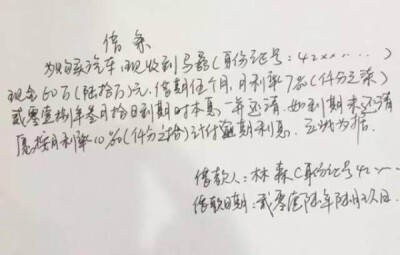 借条
为购买汽车，现收到马磊（身份证号：42xx……）
现金60万（陆拾万）元，借期伍个月，月利率7‰（仟分之柒）
贰零壹捌年叁月拾日到期时本息一并还清。如到期未还清
愿按月利率10‰（仟分之拾）计付逾期利息。立此为据。
借款人：林森（身份证号42……
借款日期：贰零壹陆年陆月